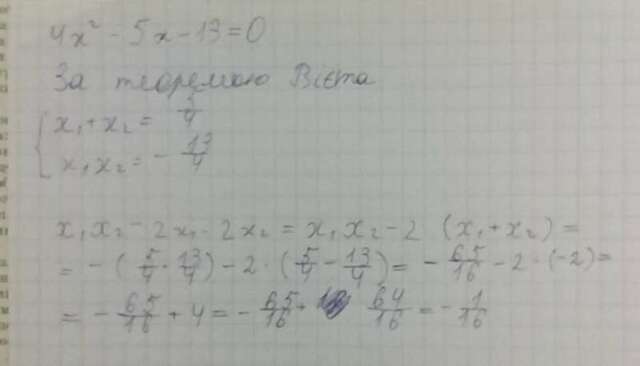 4x² - 5x - 13 = 0
За теоремою Вієта
{ x₁ + x₂ = 5/4
x₁x₂ = - 13/4
x₁x₂ - 2x₁ - 2x₂ = x₁x₂ - 2 (x₁ + x₂) =
= - (5/4 · 13/4) - 2 · (5/4 - 13/4) = - 65/16 - 2 · (-2) =
= - 65/16 + 4 = - 65/16 + 64/16 = - 1/16